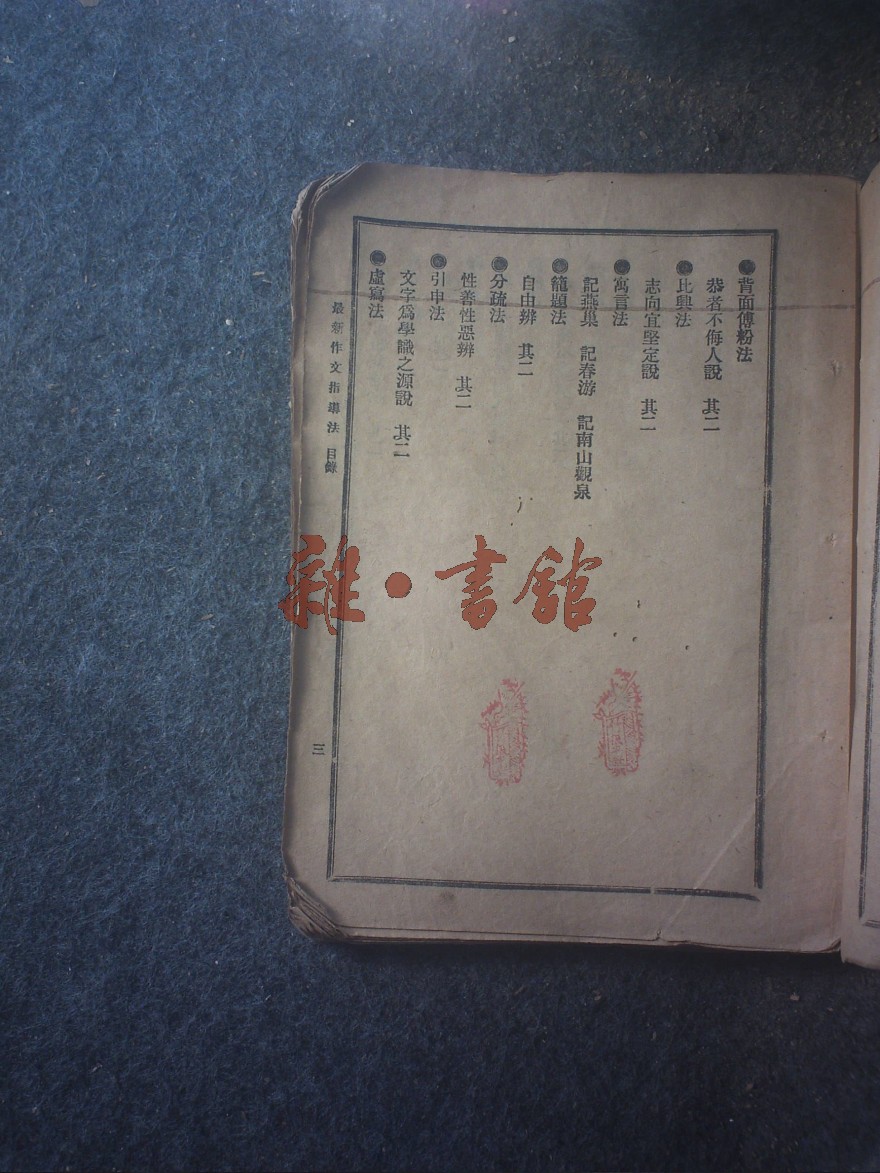 ●背面傅粉法
恭者不侮人說　其二
●比興法
志向宜堅定說　其二
●寓言法
記燕巢　記春游　記南山觀泉
●籠題法
自由辨　其二
●分疏法
性善性惡辨　其二
●引申法
文字爲學識之源說　其二
●虛寫法
最新作文指導法　目錄
三
雜·書館